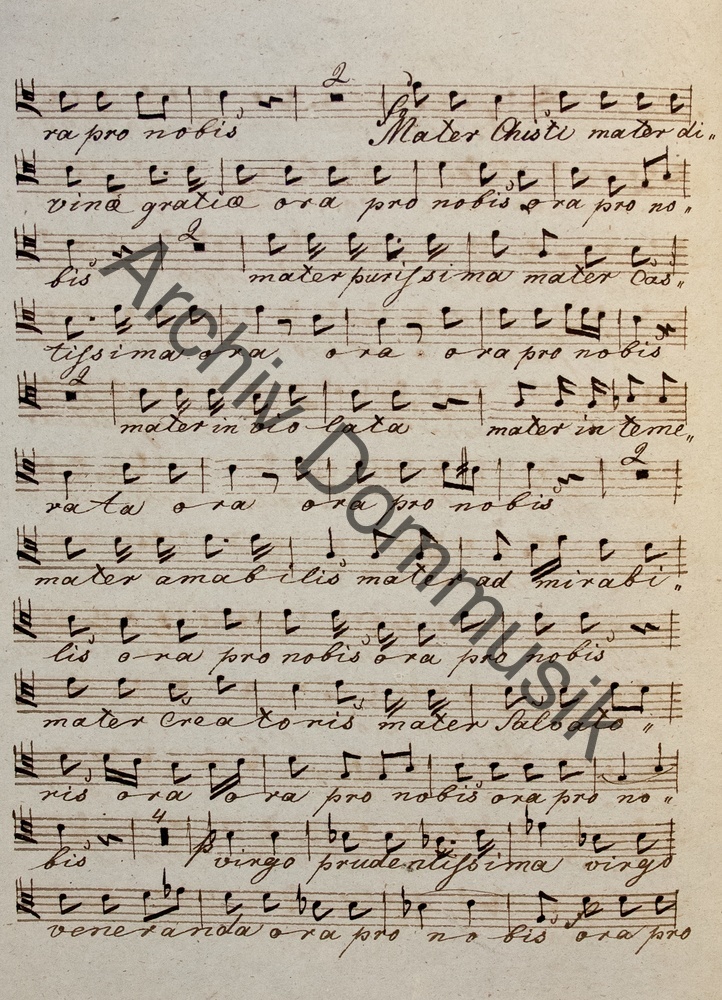 2
ra pro nobis Mater Chisti mater di„
vinæ gratiæ ora pro nobis ora pro no„
2
bis mater purissima mater Cas„
tissima ora ora ora pro nobis
2
mater in vio lata mater in teme„
2
rata ora ora pro nobis
mater amabilis mater ad mirabi„
lis ora pro nobis ora pro nobis
mater Creatoris mater Salvato„
ris ora ora pro nobis ora pro no„
4
bis p virgo prudentissima virgo
veneranda ora pro no bis ora pro
Archiv Dommusik